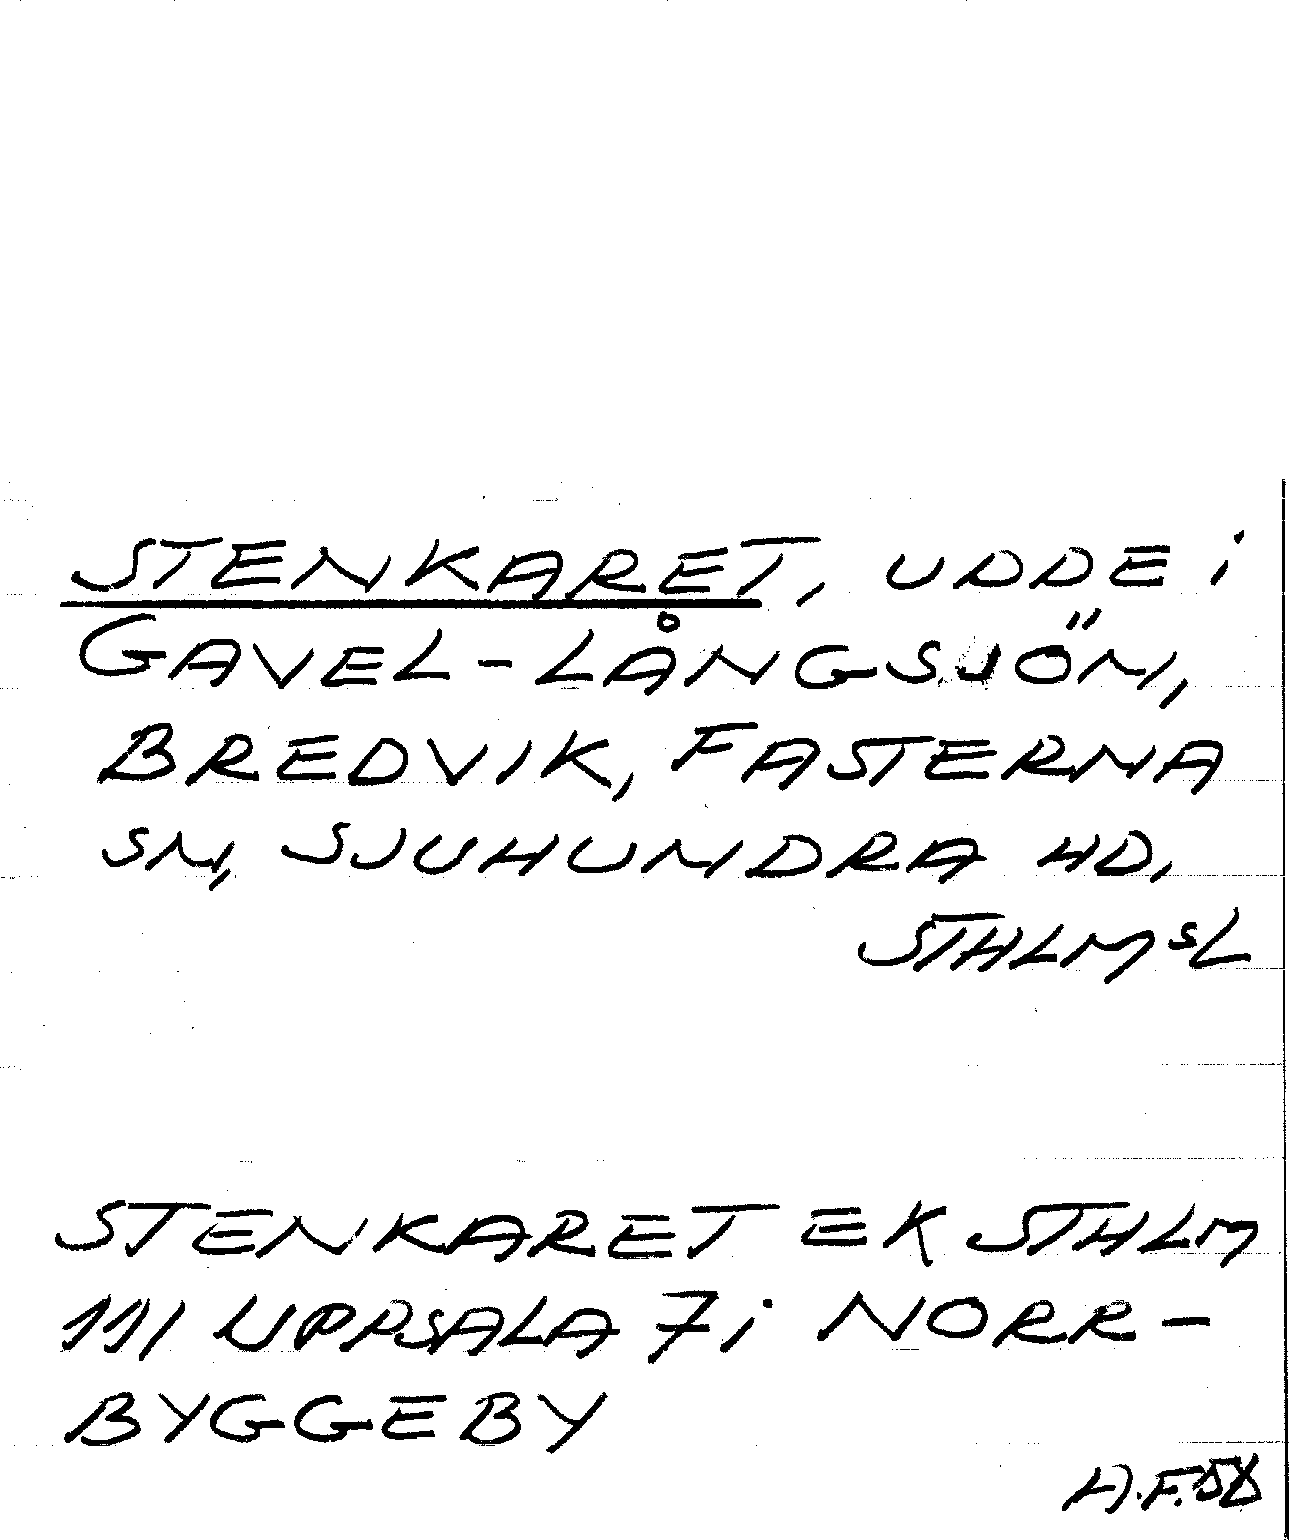 STENKARET, UDDE i
GAVEL-LÅNGSJÖN,
BREDVIK, FASTERNA
SN, SJUHUNDRA HD,
STHLMSL
STENKARET EK STHLM
11/ UPPSALA 7 i NORR-
BYGGEBY